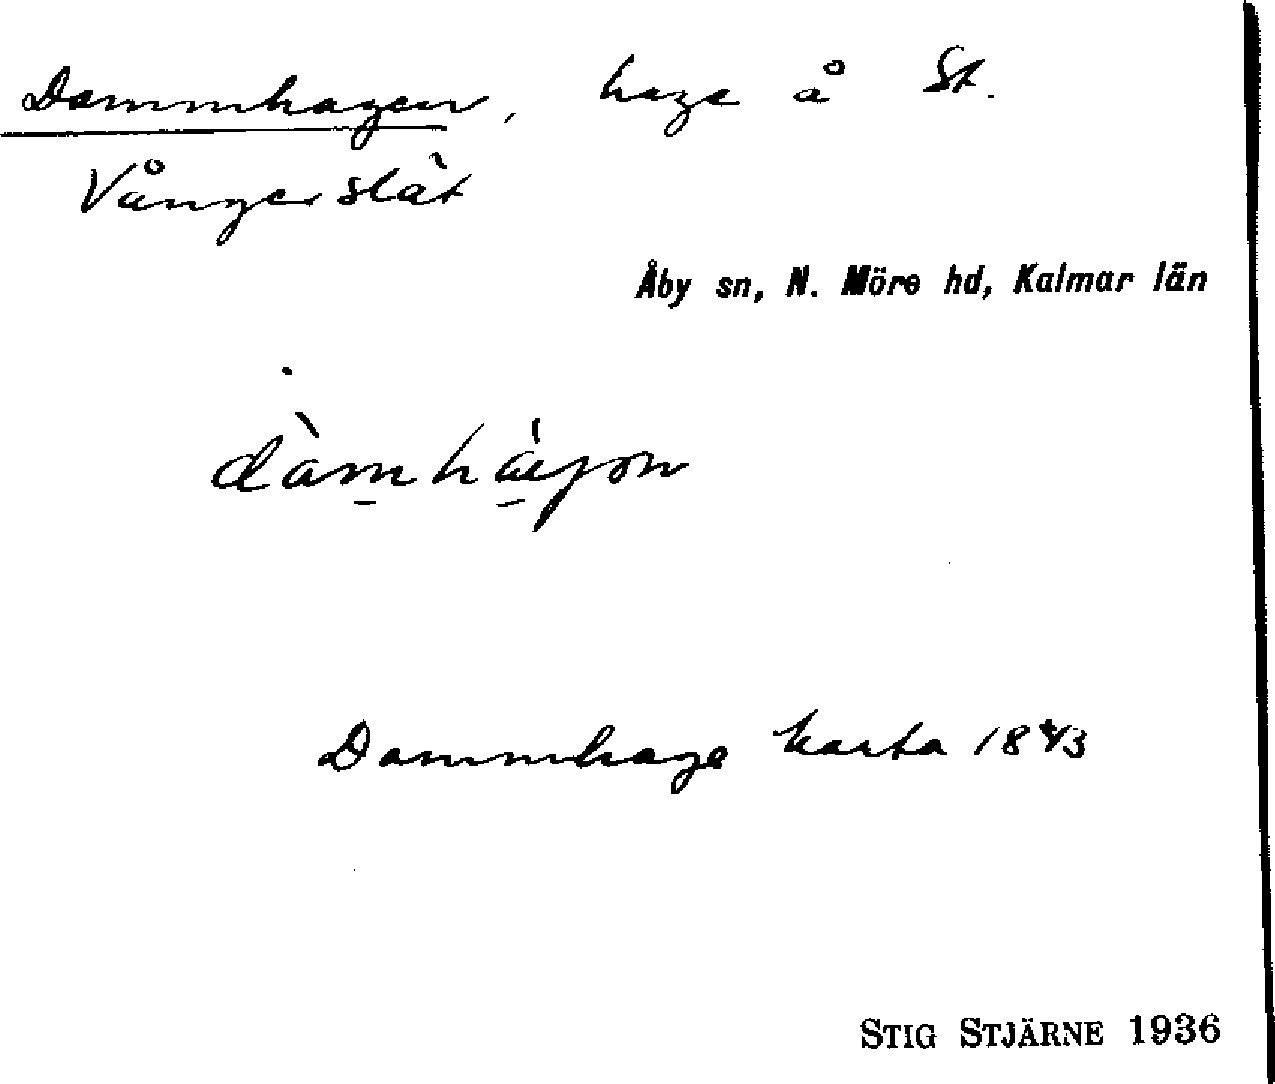 Dammhagen, hage å St.
Vångerslät
Åby sn, N. Möre hd, Kalmar län
Dammhage karta 1843
STIG STJÄRNE 1936